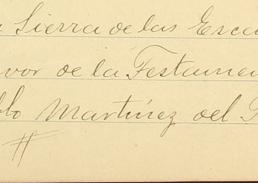 Sierra de las Esca
vor de la Testamen
blo Martínez del